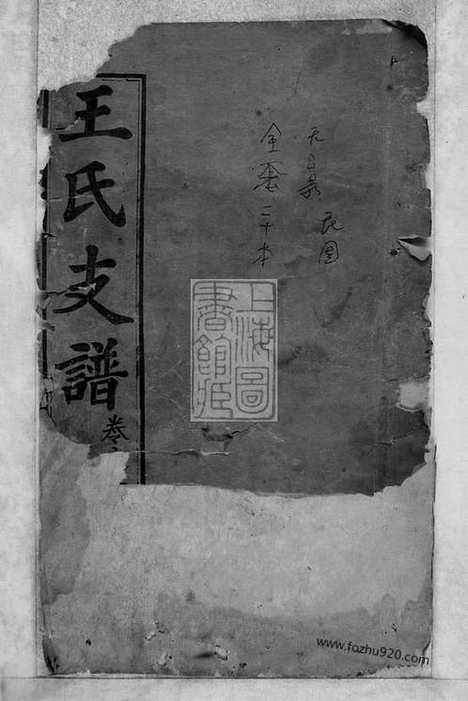 王氏支譜
卷
全套二十本
上海圖
書館
www.fozhu920.com